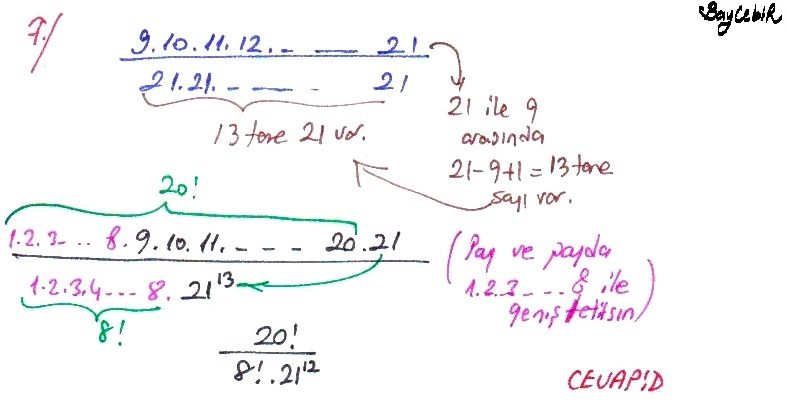 BayCebiR
7./
9.10.11.12. _ __ __ 21
21.21. _ __ __ . 21
13 tane 21 var.
21 ile 9
arasında
21-9+1=13 tane
sayı var.
20!
1.2.3- .. 8.9.10.11. - - - 20.21
1.2.3.4.... 8. 21¹³
8!
(Pay ve payda
1.2.3 ... 8 ile
genişletilsin)
20!
8!.21¹²
CEVAP:D